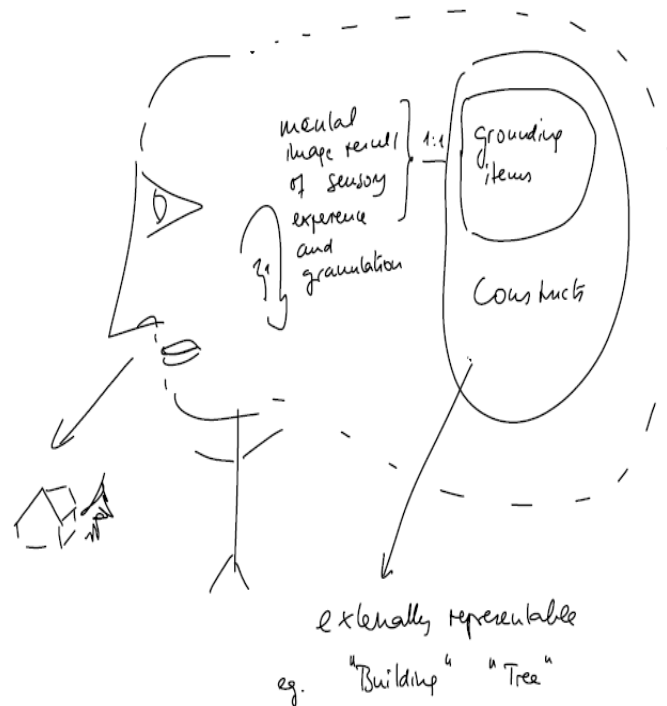 mental
image result
of sensory
experence
and
granulation
1:1
grounding
items
Constructs
externally representable
eg. "Building" "Tree"